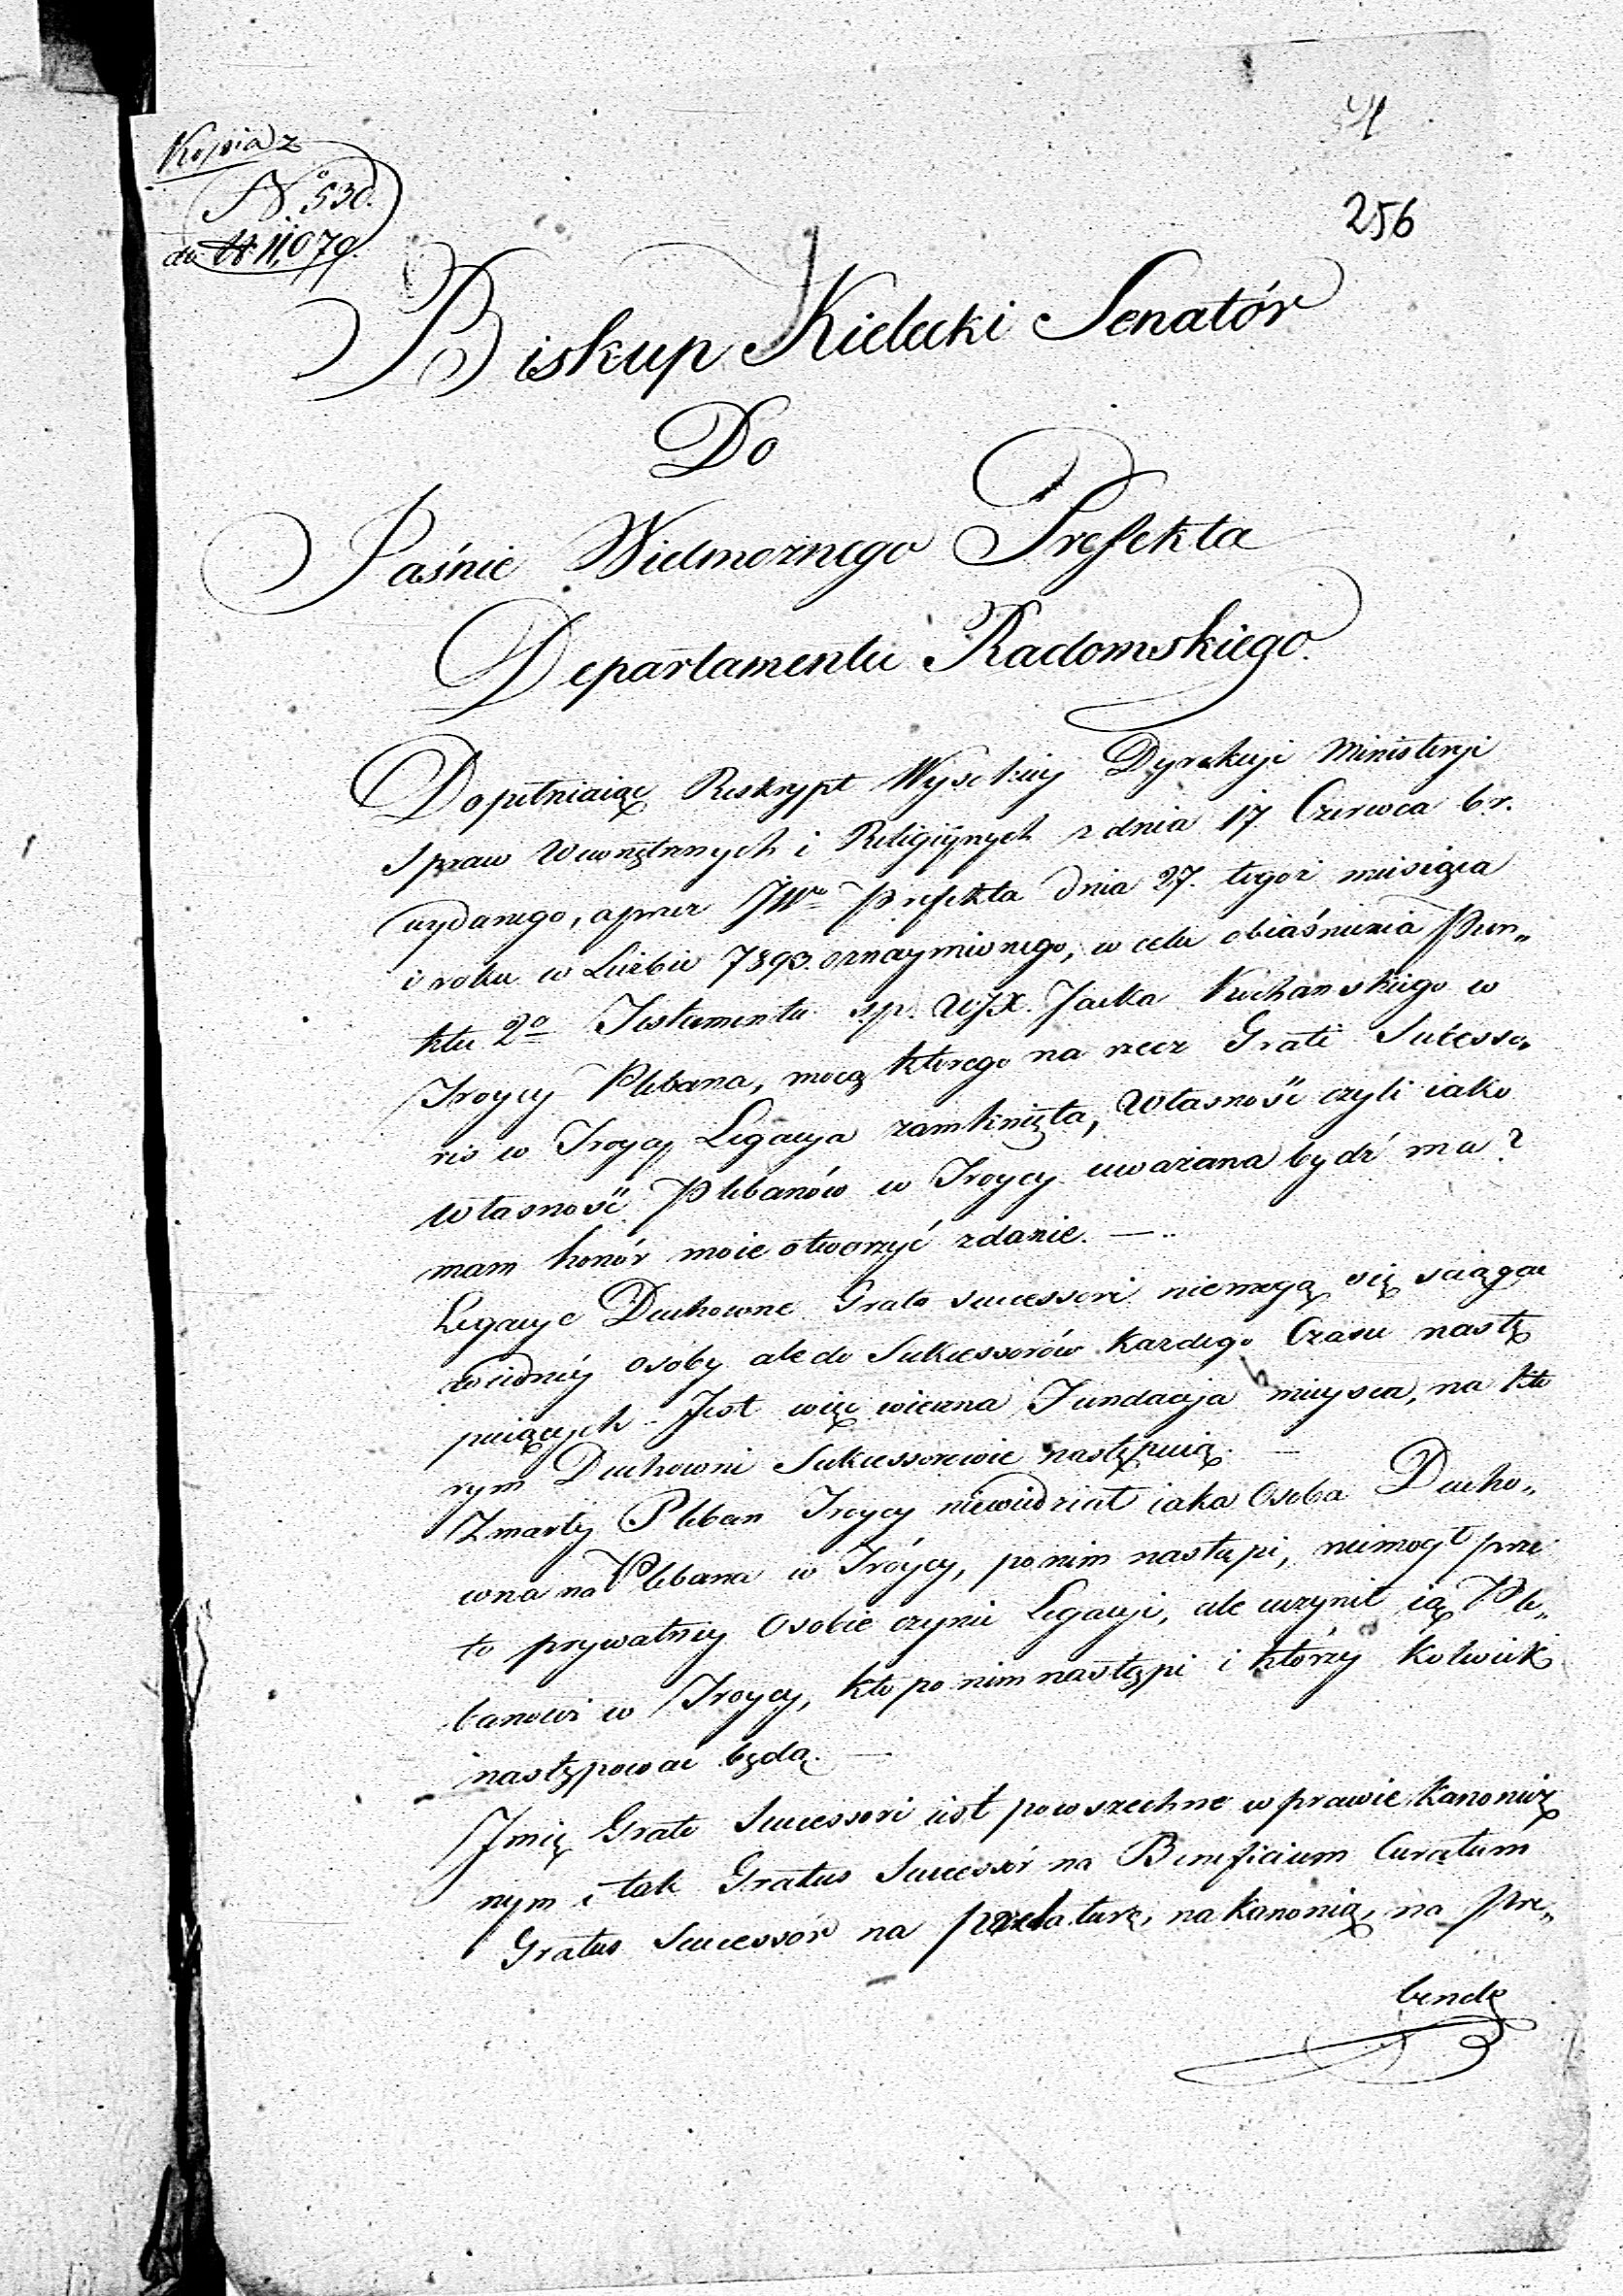 Kopia z
N° 530.
do N 11,079.
256
Biskup Kielecki Senatór
Do
Jaśnie Wielmożnego Prefekta
Departamentu Radomskiego.
Dopełniaiąc Reskrypt Wysokiey Dyrekcyi Ministeryi
Spraw Wewnętrznych i Religiynych z dnia 17. Czerwca b.r.
wydanego, a przez JWo Prefekta dnia 27. tegoż miesiąca
i roku w Liczbie 7393. oznaymionego, w celu obiaśnienia Pun„
ktu 2o Testamentu s.p. WJX. Jacka Kuchanskiego w
Troycy Plebana, mocą ktorego na rzecz Grati Sukcesso„
ris w Troycy Legacya zamknięta, Własność czyli iako
własność Plebanów w Troycy uważana bydź ma?
mam honór moie otworzyć zdanie. —..
Legacye Duchowne Grato successori niemogą się sciągać
do iedney osoby ale do Sukcessorów każdego Czasu nastę
puiących - Jest więc wieczna Fundacyja mieysca, na któ
rym Duchowni Sukcessorowie następuią. —
Zmarły Pleban Troycy niewiedział iaka Osoba Ducho„
wna na Plebana w Tróycy, po nim nastąpi, niemogł prze
to prywatney Osobie czynić Legacyi, ale uczynił ią Ple„
banowi w Troycy, kto po nim nastąpi i którzy kolwiek
następować będą. —
Jmię Grati Successori iest powszechne w prawie kanonicz
nym i tak Gratus Successór na Beneficium Curatum
Gratus Successór na prelaturę, na kanonią, na pre„
bendę